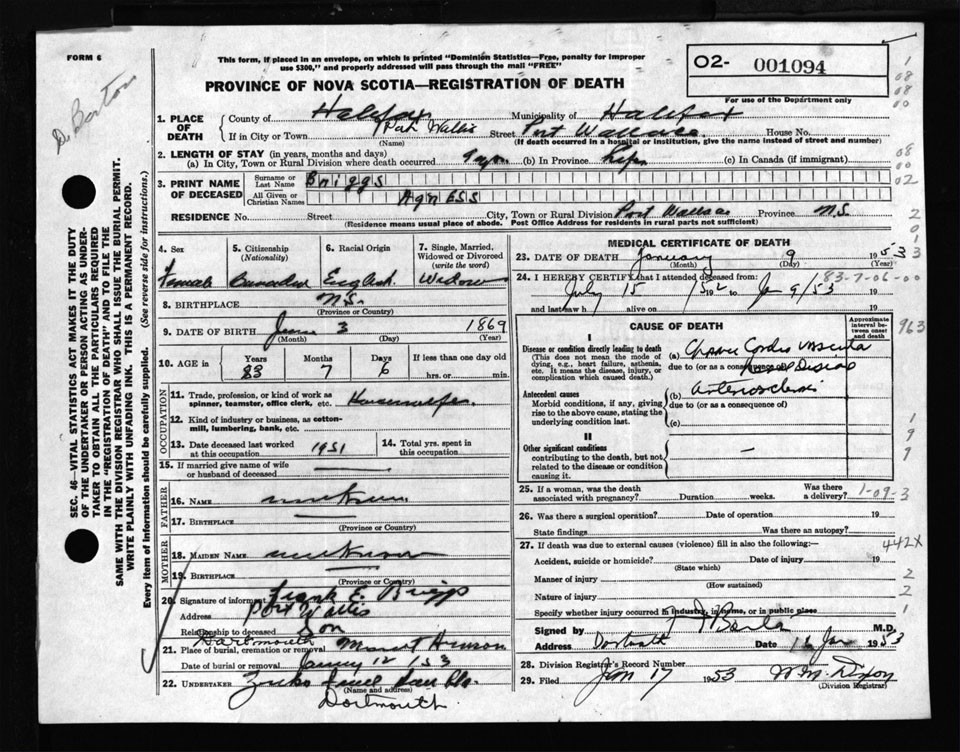 FORM 6
This form, if placed in an envelope, on which is printed "Dominion Statistics—Free, penalty for improper
use $300," and properly addressed will pass through the mail "FREE"
PROVINCE OF NOVA SCOTIA—REGISTRATION OF DEATH
O2- 001094
For use of the Department only
D. Barton
SEC. 46—VITAL STATISTICS ACT MAKES IT THE DUTY
OF THE UNDERTAKER OR PERSON ACTING AS UNDER-
TAKER TO OBTAIN ALL THE PARTICULARS REQUIRED
IN THE "REGISTRATION OF DEATH" AND TO FILE THE
SAME WITH THE DIVISION REGISTRAR WHO SHALL ISSUE THE BURIAL PERMIT.
WRITE PLAINLY WITH UNFADING INK. THIS IS A PERMANENT RECORD.
Every item of Information should be carefully supplied. (See reverse side for instructions.)
1. PLACE OF DEATH
County of Halifax Municipality of Halifax
If in City or Town Port Wallis Street Port Wallace House No.
(Name) (If death occurred in a hospital or institution, give the name instead of street and number)
2. LENGTH OF STAY (in years, months and days)
(a) In City, Town or Rural Division where death occurred 9 yrs (b) In Province Life (c) In Canada (if immigrant)
3. PRINT NAME OF DECEASED
Surname or Last Name Briggs
All Given or Christian Names Agness
RESIDENCE No. Street City, Town or Rural Division Port Wallace Province N.S.
(Residence means usual place of abode. Post Office Address for residents in rural parts not sufficient)
4. Sex Female
5. Citizenship (Nationality) Canadian
6. Racial Origin English
7. Single, Married, Widowed or Divorced (write the word) Widow
8. BIRTHPLACE N.S.
(Province or Country)
9. DATE OF BIRTH June 3 1869
(Month) (Day) (Year)
10. AGE in Years 83 Months 7 Days 6 If less than one day old hrs. or min.
OCCUPATION
11. Trade, profession, or kind of work as
spinner, teamster, office clerk, etc. Housewife
12. Kind of industry or business, as cotton-
mill, lumbering, bank, etc.
13. Date deceased last worked
at this occupation 1951
14. Total yrs. spent in
this occupation
15. If married give name of wife
or husband of deceased —
FATHER
16. NAME unknown
17. BIRTHPLACE —
(Province or Country)
MOTHER
18. MAIDEN NAME unknown
19. BIRTHPLACE —
(Province or Country)
20. Signature of informant Frank E. Briggs
Address Port Wallis
Relationship to deceased Son
Dartmouth
21. Place of burial, cremation or removal Mount Hermon
Date of burial or removal January 12 1953
22. UNDERTAKER
(Name and address)
Dartmouth
MEDICAL CERTIFICATE OF DEATH
23. DATE OF DEATH January 9 1953
(Month) (Day) (Year)
24. I HEREBY CERTIFY that I attended deceased from: 83-7-06-00
July 15 1952 to Jan 9/53 19
and last saw h alive on 19
CAUSE OF DEATH
Approximate interval between onset and death
I
Disease or condition directly leading to death
(This does not mean the mode of
dying, e.g., heart failure, asthenia,
etc. It means the disease, injury, or
complication which caused death.)
(a) Chronic Cardio vascular
due to (or as a consequence of) Renal Disease
Antecedent causes
Morbid conditions, if any, giving
rise to the above cause, stating the
underlying condition last.
(b) Arteriosclerosis
due to (or as a consequence of)
(c)
II
Other significant conditions
contributing to the death, but not
related to the disease or condition
causing it.
—
25. If a woman, was the death
associated with pregnancy? Duration weeks. Was there a delivery? 1-09-3
26. Was there a surgical operation? Date of operation 19
State findings Was there an autopsy?
27. If death was due to external causes (violence) fill in also the following:— 442X
Accident, suicide or homicide? Date of injury 19
(State which)
Manner of injury
(How sustained)
Nature of injury
Specify whether injury occurred in industry, in home, or in public place
Signed by M.D.
Address Dartmouth Date 16 Jan 1953
28. Division Registrar's Record Number
29. Filed Jan 17 1953 W.M. Dixon
(Division Registrar)
963